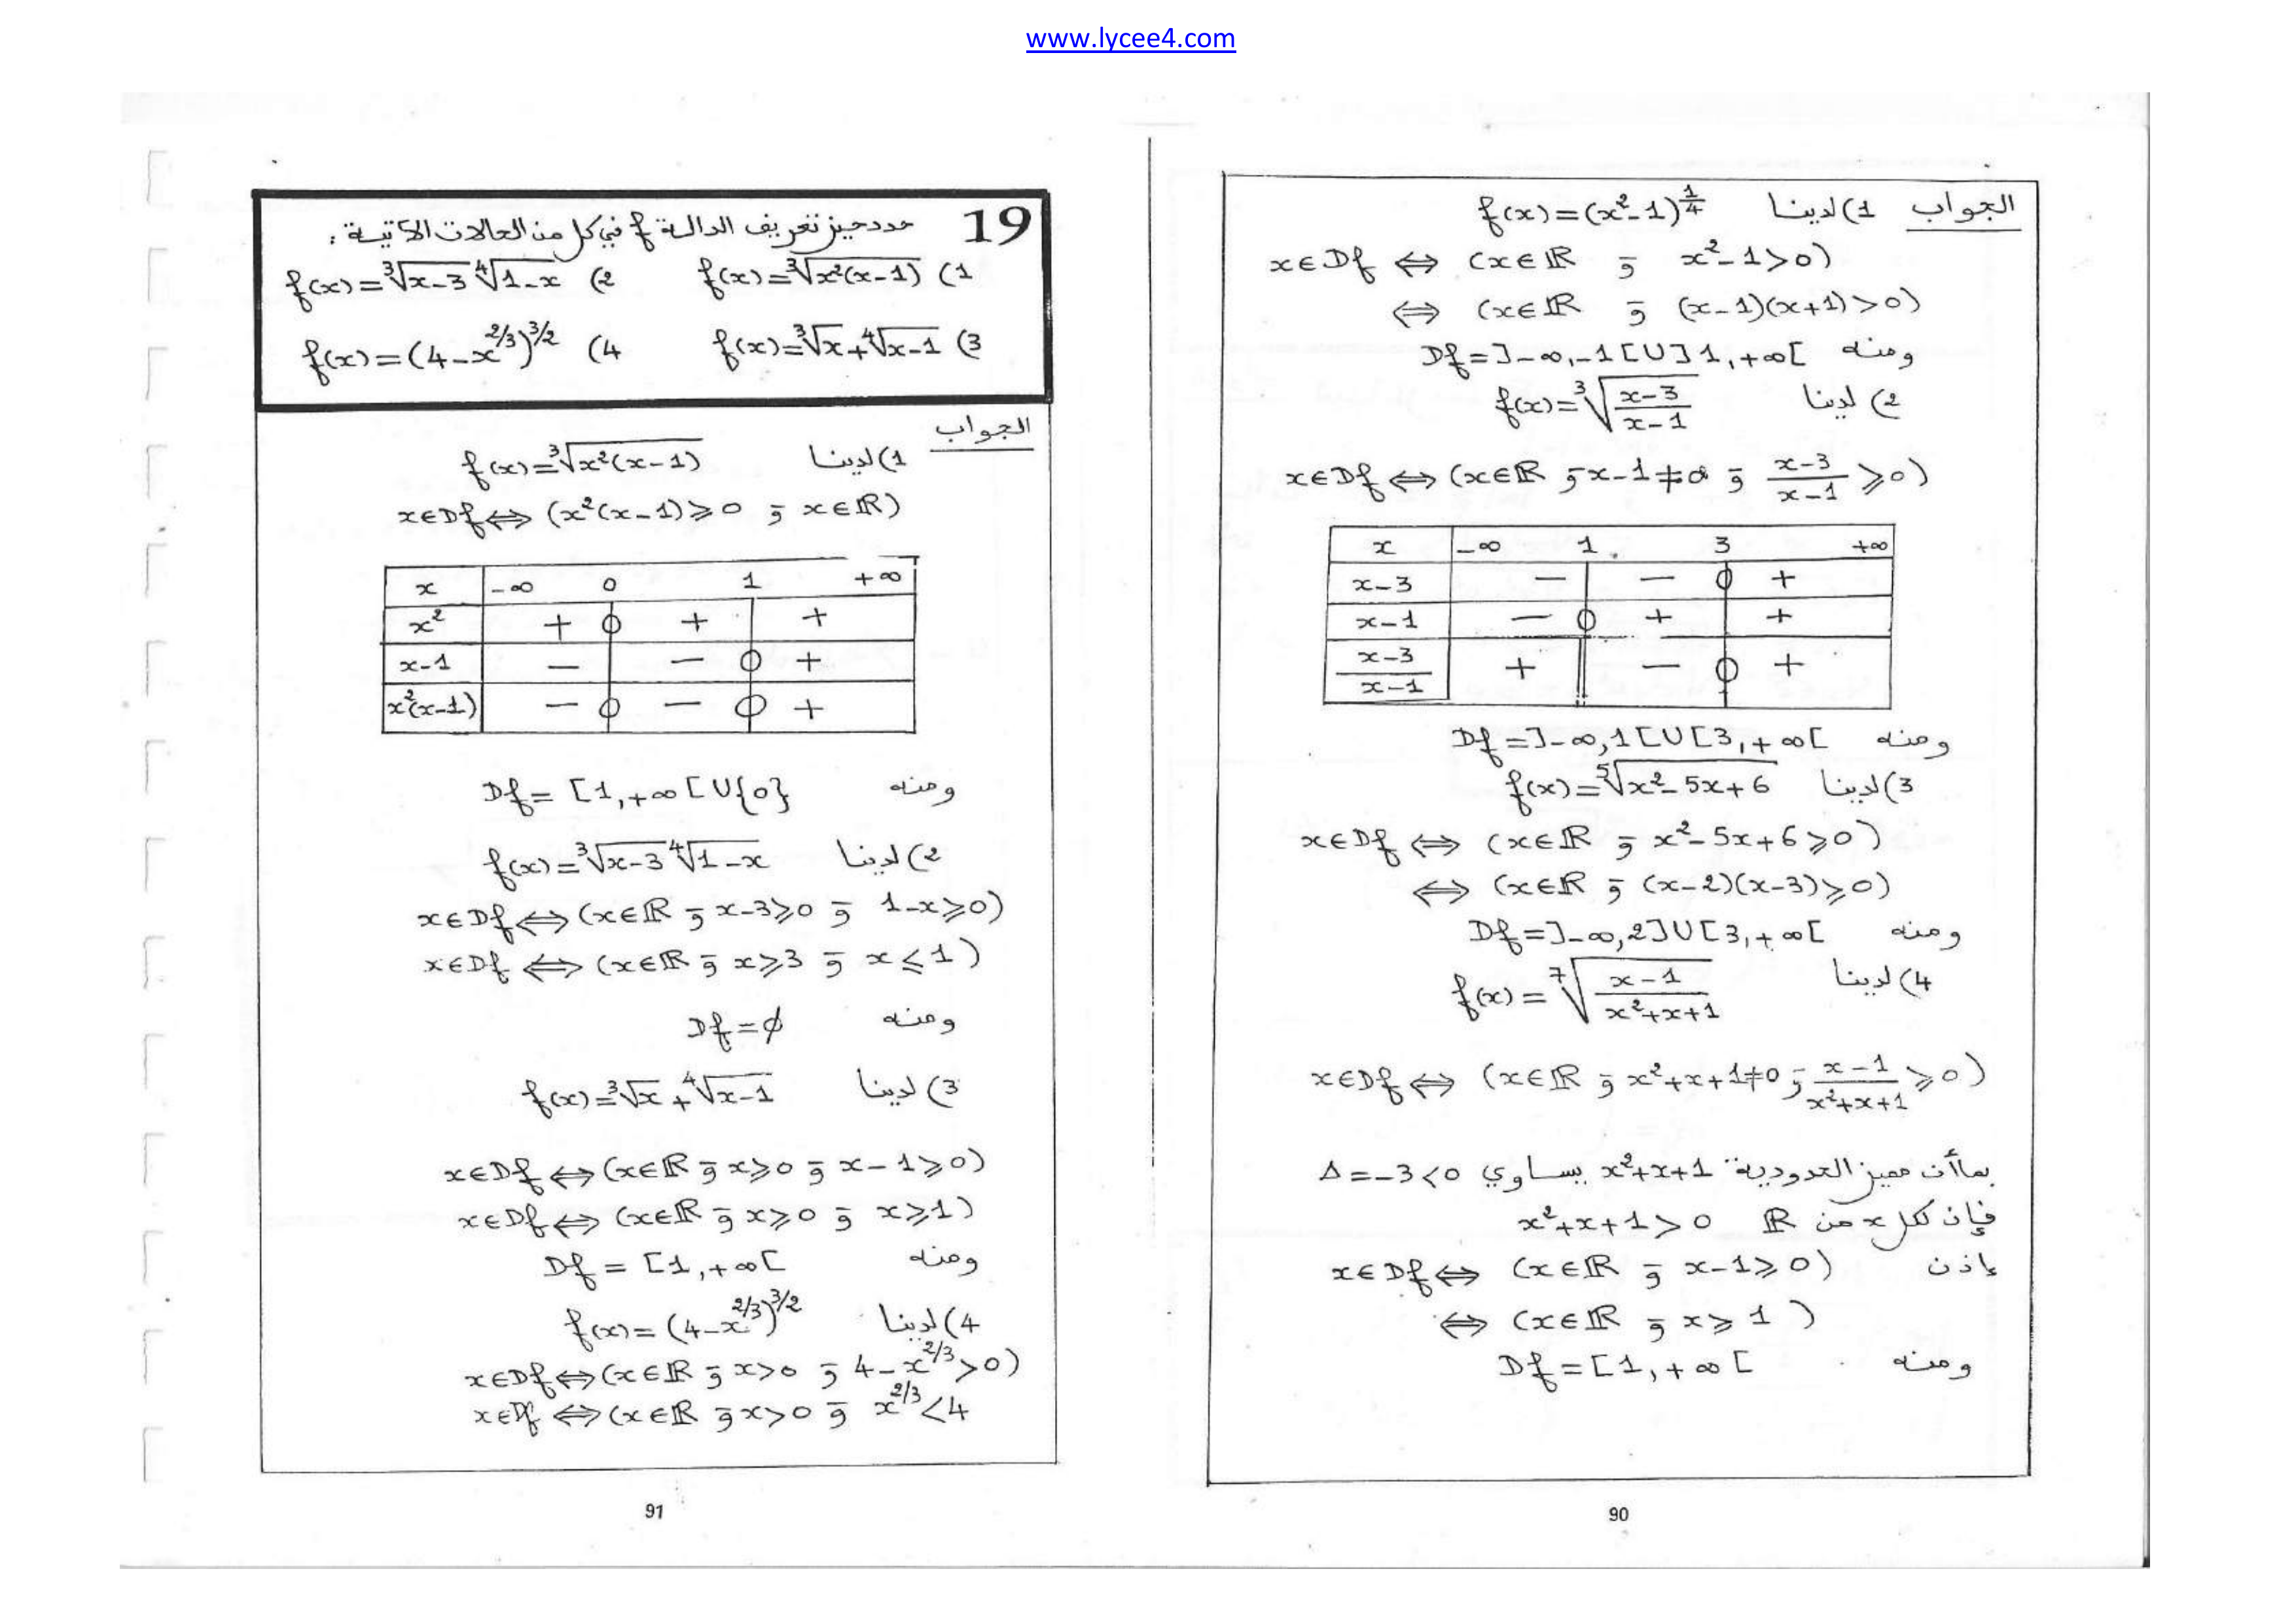 www.lycee4.com
الجواب 1) لدينا f(x)=(x²-1)^¼
x∈Df ⇔ (x∈ℝ و x²-1>0)
⇔ (x∈ℝ و (x-1)(x+1)>0)
ومنه Df=]-∞,-1[∪]1,+∞[
2) لدينا f(x)=∛((x-3)/(x-1))
x∈Df ⇔ (x∈ℝ و x-1≠0 و (x-3)/(x-1) ≥0)
x -∞ 1 3 +∞
x-3 - - 0 +
x-1 - 0 + +
(x-3)/(x-1) + || - 0 +
ومنه Df=]-∞,1[∪[3,+∞[
3) لدينا f(x)=⁵√(x²-5x+6)
x∈Df ⇔ (x∈ℝ و x²-5x+6≥0)
⇔ (x∈ℝ و (x-2)(x-3)≥0)
ومنه Df=]-∞,2]∪[3,+∞[
4) لدينا f(x)=⁷√((x-1)/(x²+x+1))
x∈Df ⇔ (x∈ℝ و x²+x+1≠0 و (x-1)/(x²+x+1) ≥0)
بما أن مميز الحدودية x²+x+1 يساوي Δ=-3<0
فإن لكل x من ℝ x²+x+1>0
إذن x∈Df ⇔ (x∈ℝ و x-1≥0)
⇔ (x∈ℝ و x≥1)
ومنه Df=[1,+∞[
90
19 حدد حيز تعريف الدالة f في كل من الحالات الآتية :
1) f(x)=∛(x²(x-1)) 2) f(x)=∛(x-3) ∜(1-x)
3) f(x)=∛x+∜(x-1) 4) f(x)=(4-x^2/3)^3/2
الجواب
1) لدينا f(x)=∛(x²(x-1))
x∈Df ⇔ (x²(x-1)≥0 و x∈ℝ)
x -∞ 0 1 +∞
x² + 0 + +
x-1 - - 0 +
x²(x-1) - 0 - 0 +
ومنه Df=[1,+∞[∪{0}
2) لدينا f(x)=∛(x-3) ∜(1-x)
x∈Df ⇔ (x∈ℝ و x-3≥0 و 1-x≥0)
x∈Df ⇔ (x∈ℝ و x≥3 و x≤1)
ومنه Df=∅
3) لدينا f(x)=∛x+∜(x-1)
x∈Df ⇔ (x∈ℝ و x≥0 و x-1≥0)
x∈Df ⇔ (x∈ℝ و x≥0 و x≥1)
ومنه Df=[1,+∞[
4) لدينا f(x)=(4-x^2/3)^3/2
x∈Df ⇔ (x∈ℝ و x>0 و 4-x^2/3>0)
x∈Df ⇔ (x∈ℝ و x>0 و x^2/3<4
91